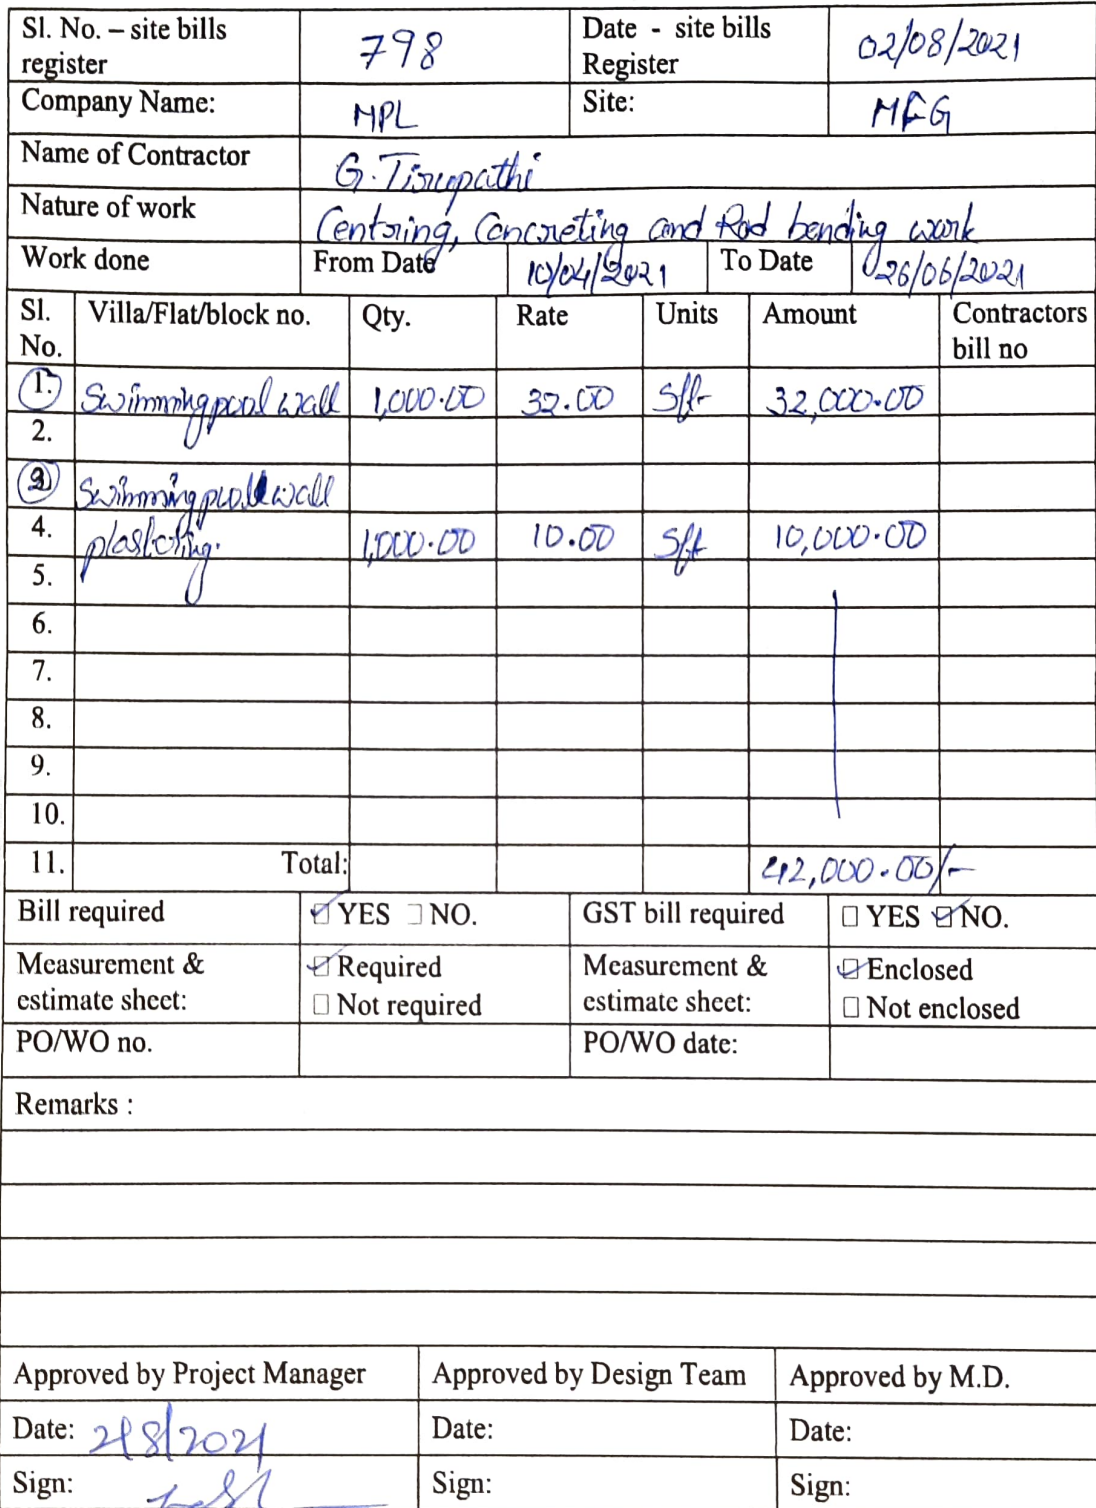 Sl. No. – site bills register 798 Date - site bills Register 02/08/2021
Company Name: MPL Site: MFG
Name of Contractor G. Tirupathi
Nature of work Centring, Concreting and Rod bending work
Work done From Date 10/04/2021 To Date 26/06/2021
Sl. No. Villa/Flat/block no. Qty. Rate Units Amount Contractors bill no
1. Swimming pool wall 1,000.00 32.00 Sft 32,000.00
2.
Swimming pool wall
4. plastering. 1,000.00 10.00 Sft 10,000.00
5.
6.
7.
8.
9.
10.
11. Total: 42,000.00/-
Bill required YES NO. GST bill required YES NO.
Measurement & estimate sheet: Required Not required Measurement & estimate sheet: Enclosed Not enclosed
PO/WO no. PO/WO date:
Remarks :
Approved by Project Manager Approved by Design Team Approved by M.D.
Date: 2/8/2021 Date: Date:
Sign: Sign: Sign: